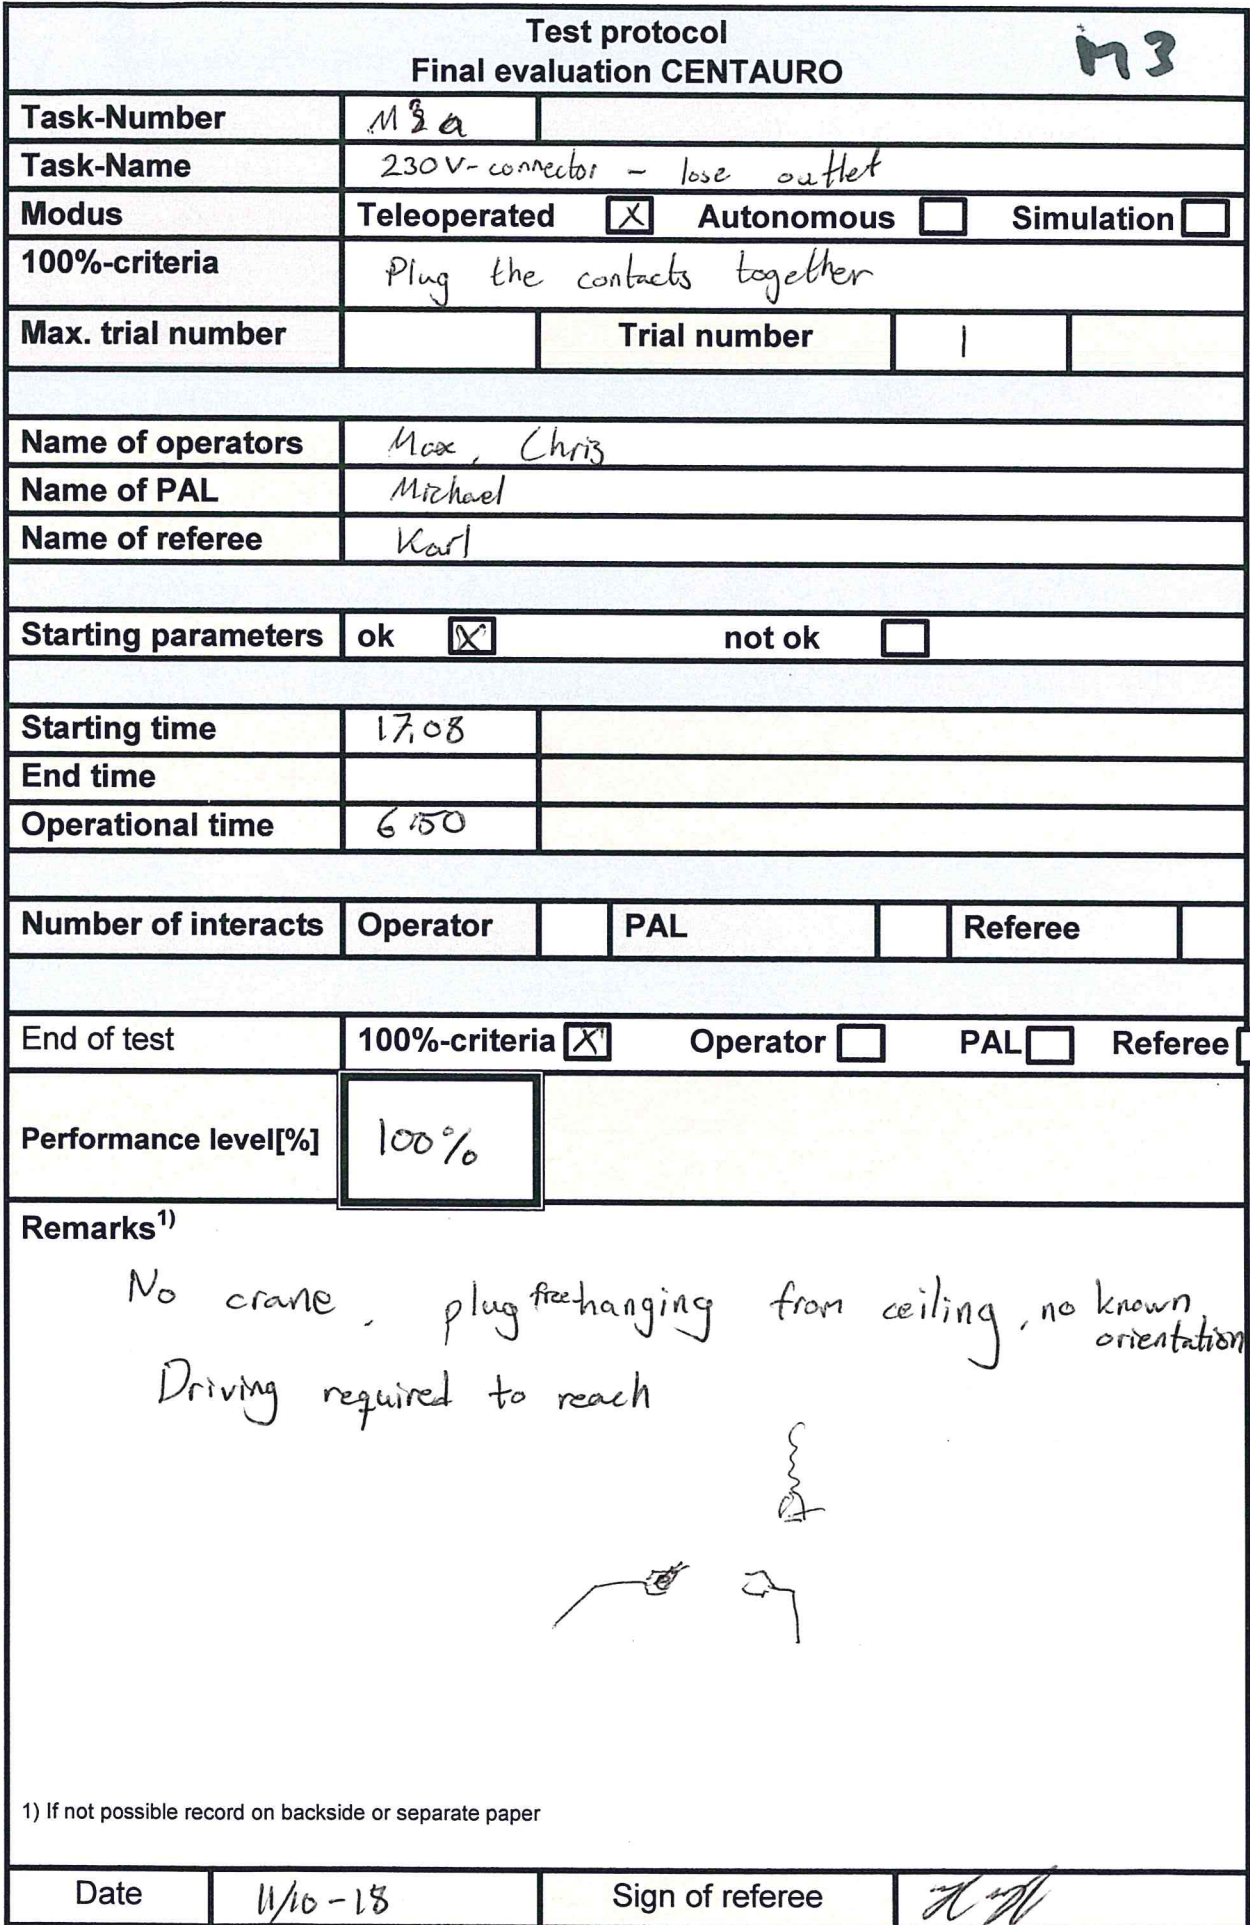 Test protocol
Final evaluation CENTAURO
M3
Task-Number
Task-Name 230V-connector - lose outlet
Modus Teleoperated X Autonomous Simulation
100%-criteria Plug the contacts together
Max. trial number Trial number 1
Name of operators Max, Chris
Name of PAL Michael
Name of referee Karl
Starting parameters ok X not ok
Starting time 17:08
End time
Operational time 6:50
Number of interacts Operator PAL Referee
End of test 100%-criteria X Operator PAL Referee
Performance level[%] 100%
Remarks1)
No crane, plug free hanging from ceiling, no known
orientation
Driving required to reach
1) If not possible record on backside or separate paper
Date 11/10-18 Sign of referee